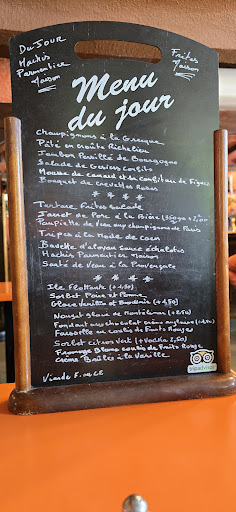 Du JOUR
Hachis
Parmentier
Maison
Frites
Maison
Menu
du jour
Champignons à la Grecque
Pâté en croûte Richelieu
Jambon Persillé de Bourgogne
Salade de Gesiers Confits
Mousse de canard et sa confiture de Figues
Bouquet de crevettes Roses
Tartare, frites salade
Jarret de Porc à la Bière
Paupiette de veau aux champignons de Paris
Tripes à la mode de Caen
Bavette d'aloyau sauce échalotes
Hachis Parmentier Maison
Sauté de Veau à la Provençale
Ile Flottante
Sorbet Poire et Pomme
Glace Vanille
Nougat glacé de Montélimar
Fondant au chocolat crème anglaise
Faisselle au coulis de Fruits Rouges
Sorbet citron vert (+ Vodka 2,50)
Fromage Blanc coulis de Fruits Rouge
Crème Brûlée à la Vanille
Viande
tripadvisor